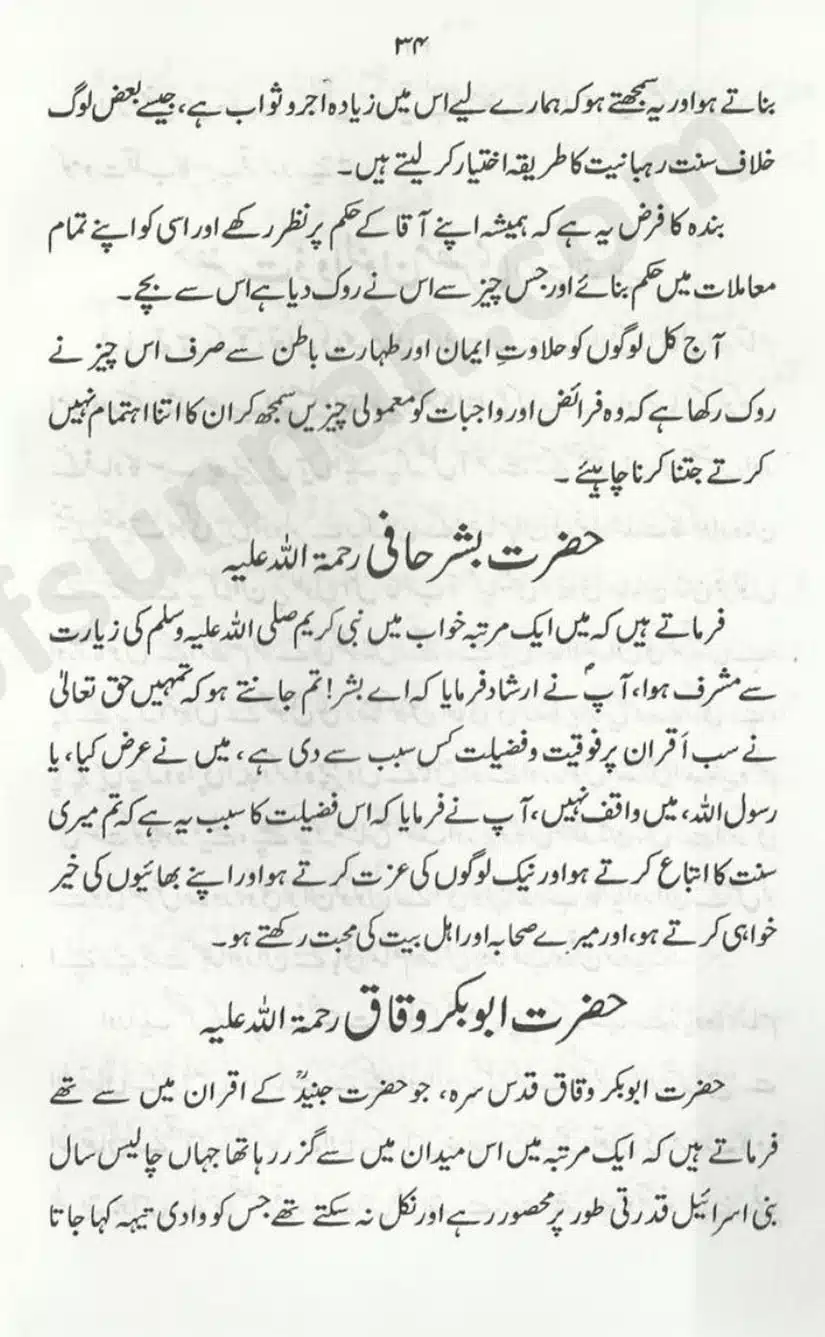 ۳۴
بناتے ہو اور یہ سمجھتے ہو کہ ہمارے لیے اس میں زیادہ اجر و ثواب ہے، جیسے بعض لوگ
خلاف سنت رہبانیت کا طریقہ اختیار کر لیتے ہیں۔
بندہ کا فرض یہ ہے کہ ہمیشہ اپنے آقا کے حکم پر نظر رکھے اور اسی کو اپنے تمام
معاملات میں حکم بنائے اور جس چیز سے اس نے روک دیا ہے اس سے بچے۔
آج کل لوگوں کو حلاوتِ ایمان اور طہارت باطن سے صرف اس چیز نے
روک رکھا ہے کہ وہ فرائض اور واجبات کو معمولی چیزیں سمجھ کر ان کا اتنا اہتمام نہیں
کرتے جتنا کرنا چاہیئے۔
حضرت بشر حافی رحمۃ اللہ علیہ
فرماتے ہیں کہ میں ایک مرتبہ خواب میں نبی کریم صلی اللہ علیہ وسلم کی زیارت
سے مشرف ہوا، آپؐ نے ارشاد فرمایا کہ اے بشر! تم جانتے ہو کہ تمہیں حق تعالیٰ
نے سب اَقران پر فوقیت و فضیلت کس سبب سے دی ہے، میں نے عرض کیا، یا
رسول اللہ، میں واقف نہیں، آپ نے فرمایا کہ اس فضیلت کا سبب یہ ہے کہ تم میری
سنت کا اتباع کرتے ہو اور نیک لوگوں کی عزت کرتے ہو اور اپنے بھائیوں کی خیر
خواہی کرتے ہو، اور میرے صحابہ اور اہل بیت کی محبت رکھتے ہو۔
حضرت ابوبکر وقاق رحمۃ اللہ علیہ
حضرت ابوبکر وقاق قدس سرہ، جو حضرت جنیدؒ کے اقران میں سے تھے
فرماتے ہیں کہ ایک مرتبہ میں اس میدان میں سے گزر رہا تھا جہاں چالیس سال
بنی اسرائیل قدرتی طور پر محصور رہے اور نکل نہ سکتے تھے جس کو وادی تیہہ کہا جاتا